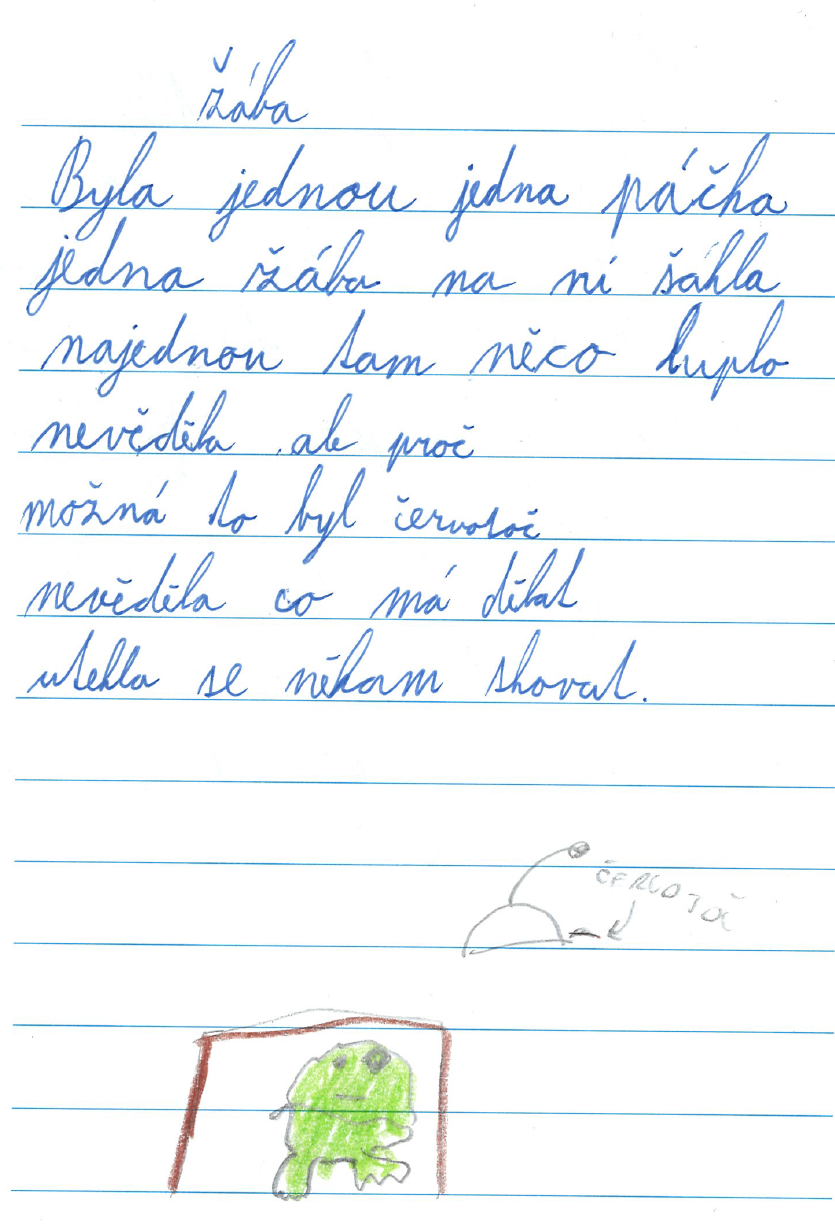 žába
Byla jednou jedna páčka
jedna žába na ni šáhla
najednou tam něco luplo
nevěděla ale proč
možná to byl červotoč
nevěděla co má dělat
utekla se někam shovat.
ČERVOTOČ